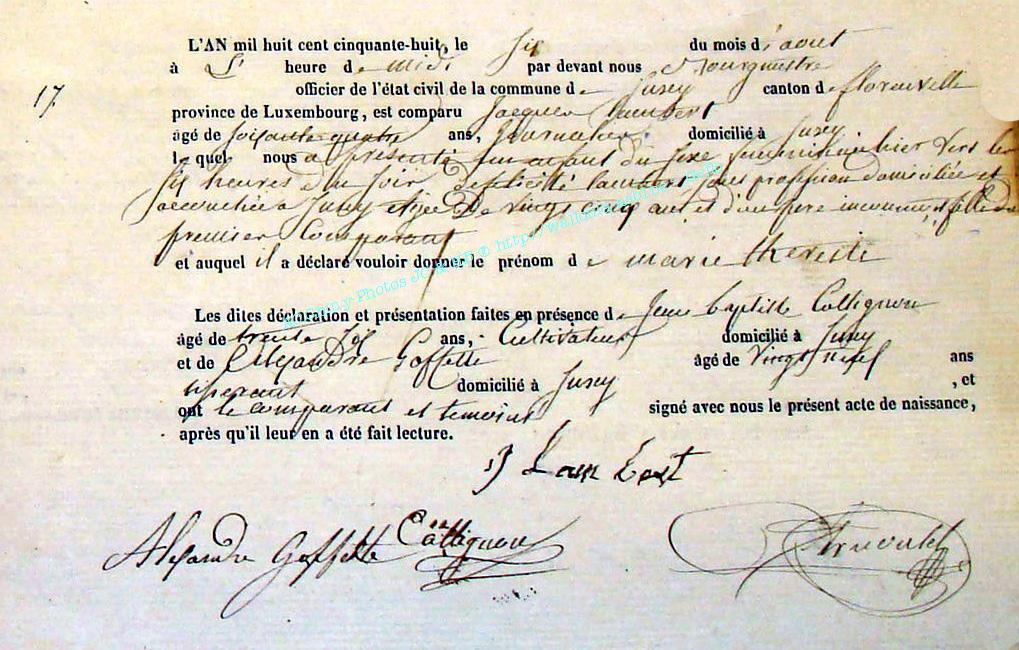 L'AN mil huit cent cinquante-huit, le six du mois d'aout
à heure de midi par devant nous Bourgmestre
17. officier de l'état civil de la commune de Jusey canton de florenville
province de Luxembourg, est comparu Jacques Lambert
âgé de soixante quatre ans, journalier domicilié à Jusey
lequel nous a présenté un enfant du sexe féminin né hier vers les
six heures du soir de félicité lambert sans profession domiciliée et
accouchée à Jusey agée de vingt cinq ans et d'un père inconnu fille du
premier Comparant
et auquel il a déclaré vouloir donner le prénom de marie theresie
Les dites déclaration et présentation faites en présence de Jean baptiste Collignon
âgé de trente six ans, Cultivateur domicilié à Jusey
et de Alexandre Goffette âgé de vingt neuf ans
domicilié à Jusey , et
ont le comparant et temoins signé avec nous le présent acte de naissance,
après qu'il leur en a été fait lecture.
J Lam bert
Alexandre Goffette Collignon